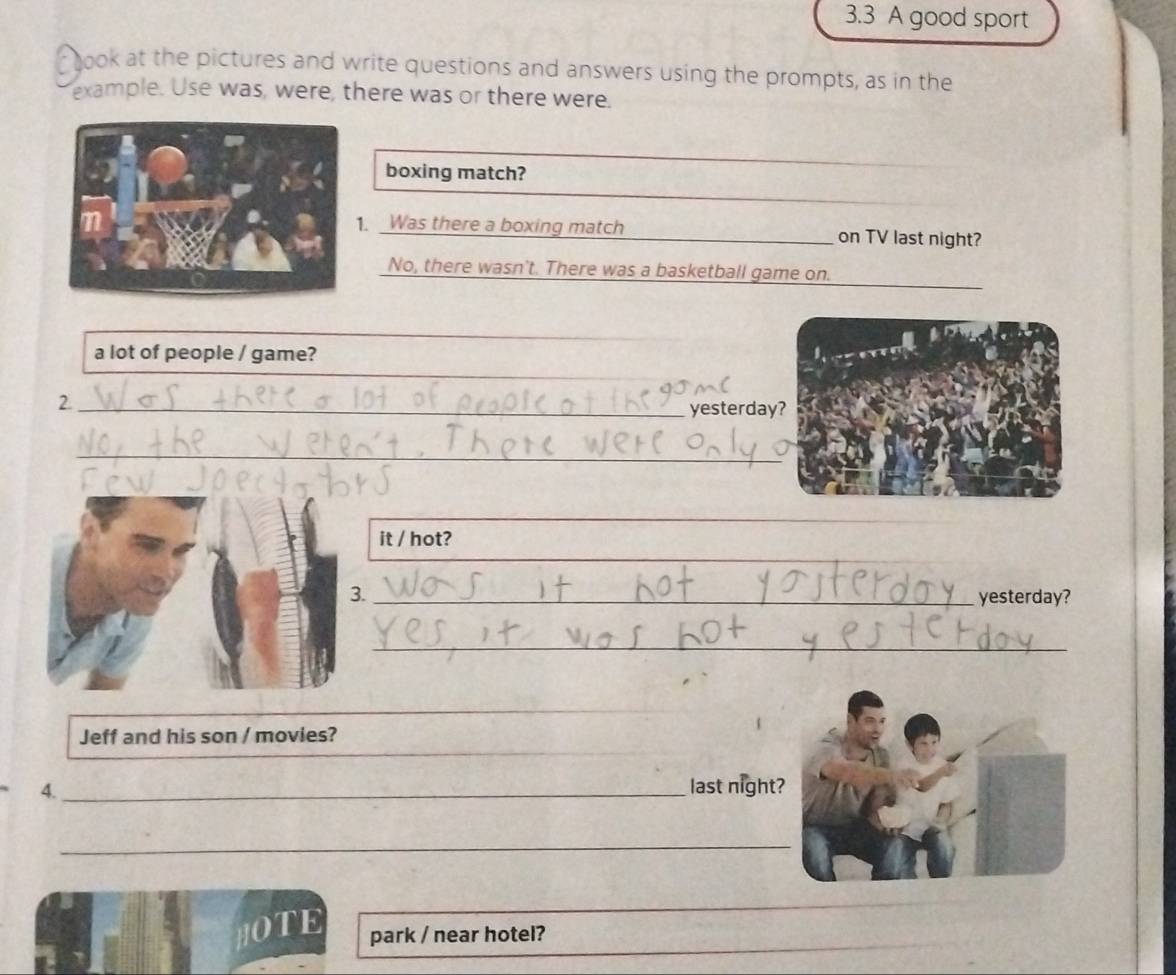 3.3 A good sport
Look at the pictures and write questions and answers using the prompts, as in the
example. Use was, were, there was or there were.
m
boxing match?
1. Was there a boxing match on TV last night?
No, there wasn't. There was a basketball game on.
a lot of people / game?
2. Was there a lot of people at the game yesterday?
No, the weren't. There were only a
few spectators
it / hot?
3. was it hot yosterday yesterday?
Yes, it was hot yesterday
Jeff and his son / movies?
4. last night?
HOTE
park / near hotel?